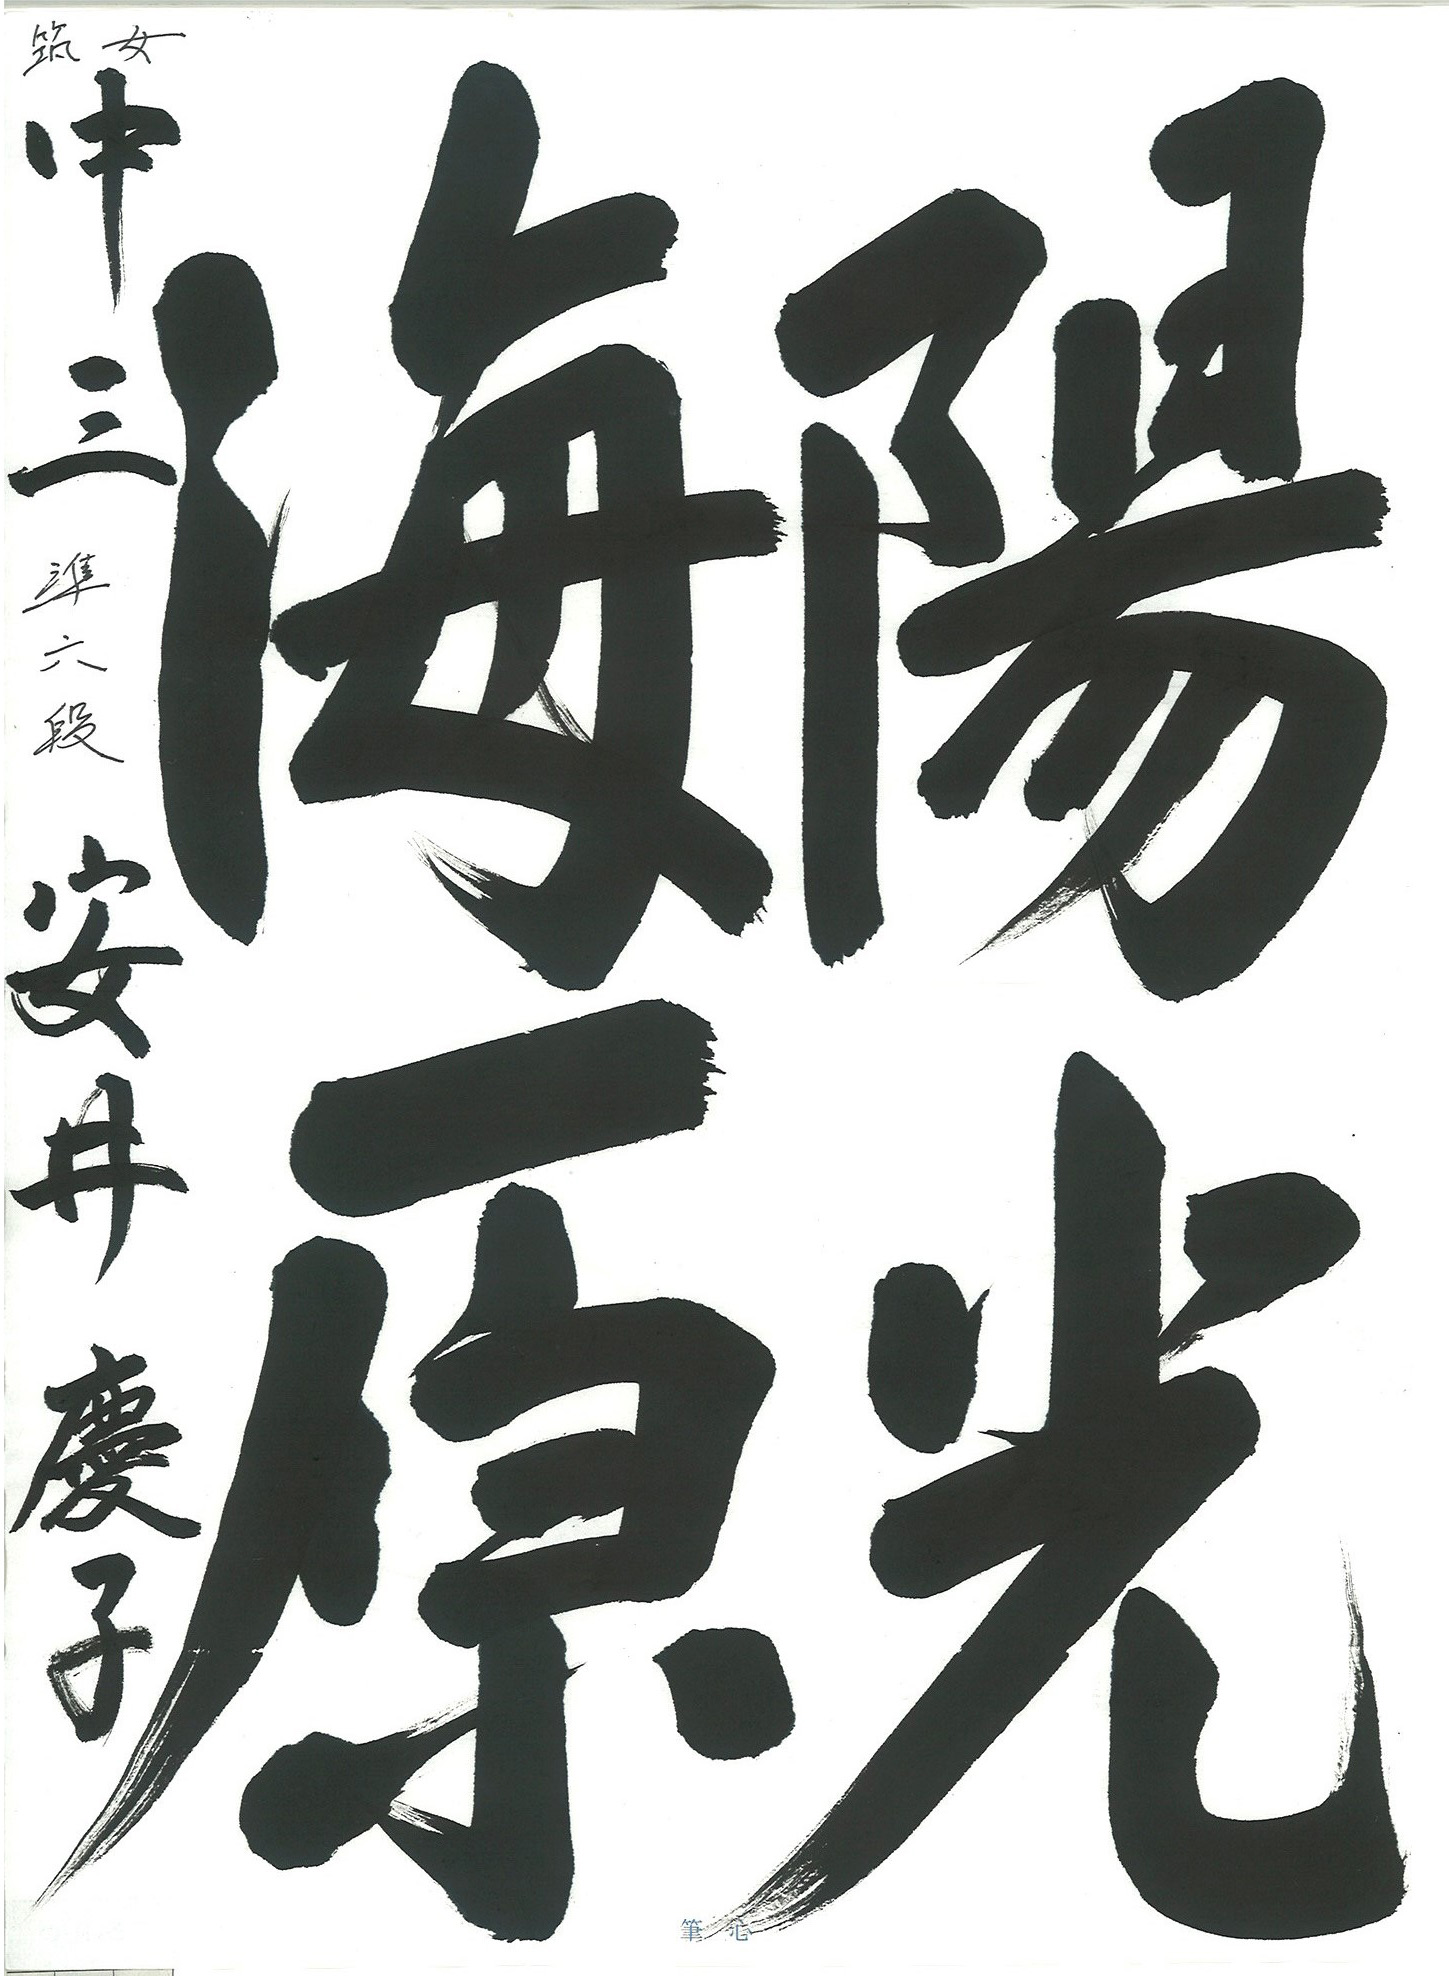 陽光
海原
筑女
中三 準六段 安井慶子
筆心